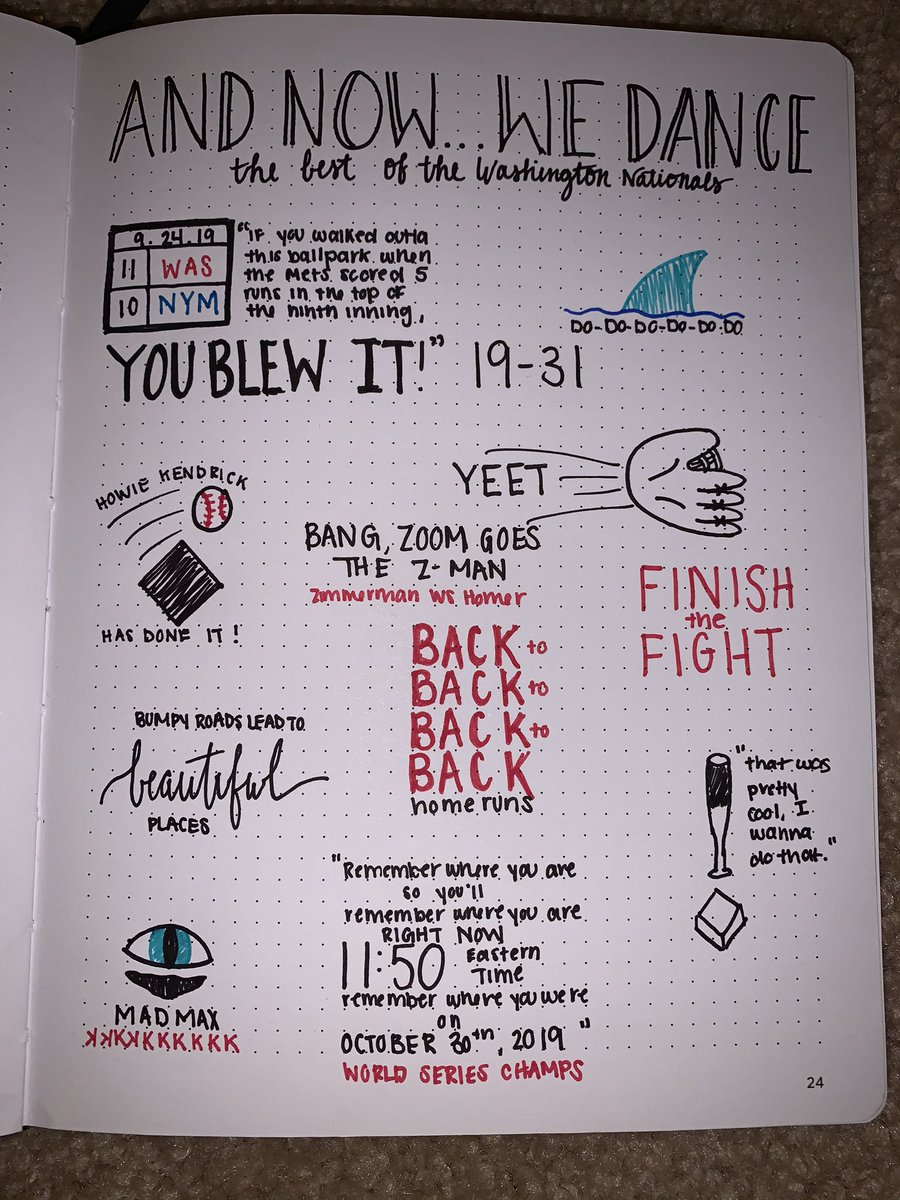 AND NOW... WE DANCE
the best of the Washington Nationals
9.24.19
11 WAS
10 NYM
"IF you walked outta
this ballpark when
the Mets scored 5
runs in the top of
the ninth inning,
YOU BLEW IT!"
19-31
DO-DO-DO-DO-DO-DO
HOWIE KENDRICK
HAS DONE IT!
YEET
BANG, ZOOM GOES
THE Z-MAN
Zimmerman WS Homer
FINISH
the
FIGHT
BACK to
BACK to
BACK to
BACK
home runs
BUMPY ROADS LEAD TO
beautiful
PLACES
"that was
pretty
cool, I
wanna
do that."
"Remember where you are
so you'll
remember where you are
RIGHT NOW
11:50 Eastern
Time
remember where you were
on
OCTOBER 30th, 2019"
WORLD SERIES CHAMPS
MAD MAX
ʞʞKʞKKKKKK
24